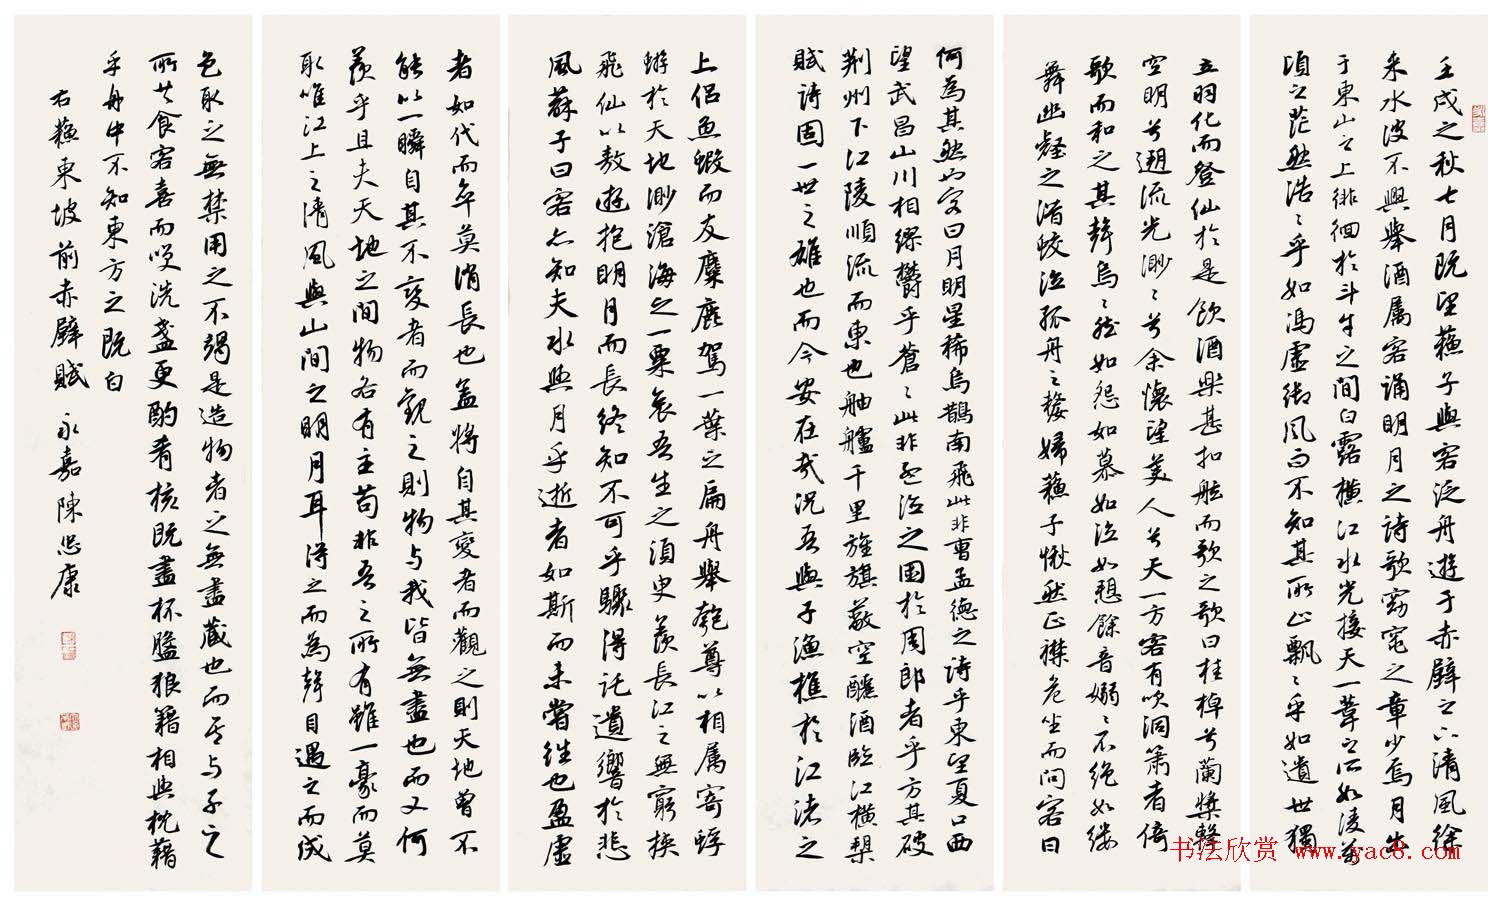 壬戌之秋七月既望蘇子與客泛舟遊于赤壁之下清風徐
来水波不興舉酒属客誦明月之詩歌窈窕之章少焉月出
于東山之上徘徊於斗牛之間白露橫江水光接天一葦之所如凌萬
頃之茫然浩〻乎如馮虛御風而不知其所止飄〻乎如遺世獨
立羽化而登仙於是飲酒樂甚扣舷而歌之歌曰桂棹兮蘭槳擊
空明兮遡流光渺〻兮余懷望美人兮天一方客有吹洞簫者倚
歌而和之其聲烏〻然如怨如慕如泣如愬餘音嫋〻不絕如縷
舞幽壑之潛蛟泣孤舟之嫠婦蘇子愀然正襟危坐而問客曰
何為其然也客曰月明星稀烏鵲南飛此非曹孟德之詩乎東望夏口西
望武昌山川相繆鬱乎蒼〻此非孟德之困於周郎者乎方其破
荆州下江陵順流而東也舳艫千里旌旗蔽空釃酒臨江橫槊
賦詩固一世之雄也而今安在哉況吾與子漁樵於江渚之
上侶魚蝦而友麋鹿駕一葉之扁舟舉匏尊以相属寄蜉
蝣於天地渺滄海之一粟哀吾生之須臾羨長江之無窮挾
飛仙以敖遊抱明月而長終知不可乎驟得託遺響於悲
風蘇子曰客亦知夫水與月乎逝者如斯而未嘗往也盈虛
者如代而卒莫消長也盖將自其變者而觀之則天地曾不
能以一瞬自其不變者而觀之則物与我皆無盡也而又何
羨乎且夫天地之間物各有主苟非吾之所有雖一豪而莫
取唯江上之清風與山間之明月耳得之而為聲目遇之而成
色取之無禁用之不竭是造物者之無盡藏也而吾与子之
所共食客喜而笑洗盞更酌肴核既盡杯盤狼籍相與枕藉
乎舟中不知東方之既白
右蘇東坡前赤壁賦 永嘉陳忠康
书法欣赏 www.yac8.com